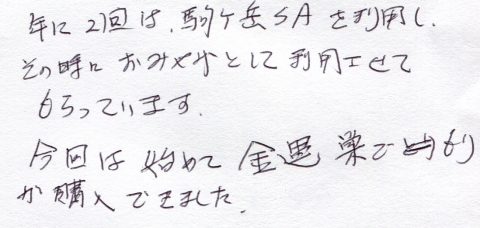 年に2回は、駒ヶ岳SAを利用し、
その時に おみやげとして利用させて
もらっています。
今回は 始めて 金運 巣ごもり
が購入できました。